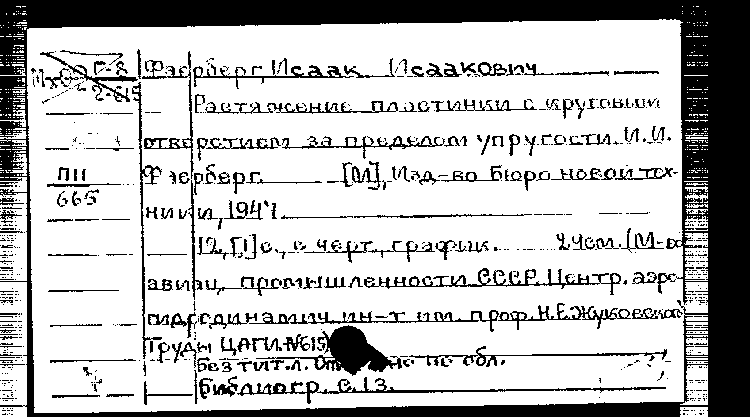 Г-8
2-615
Фаерберг, Исаак Исаакович
Растяжение пластинки с круговым
отверстием за пределом упругости. И.И.
ПII
665
Фаерберг. [М], Изд-во Бюро новой тех-
ники, 1947.
12, [1] с., с черт., график. 24см. (М-во
авиац. промышленности СССР. Центр. аэро-
гидродинамич. ин-т им. проф. Н.Е.Жуковского
Труды ЦАГИ. №615)
без тит.л. по обл.
библиогр. с. 13.